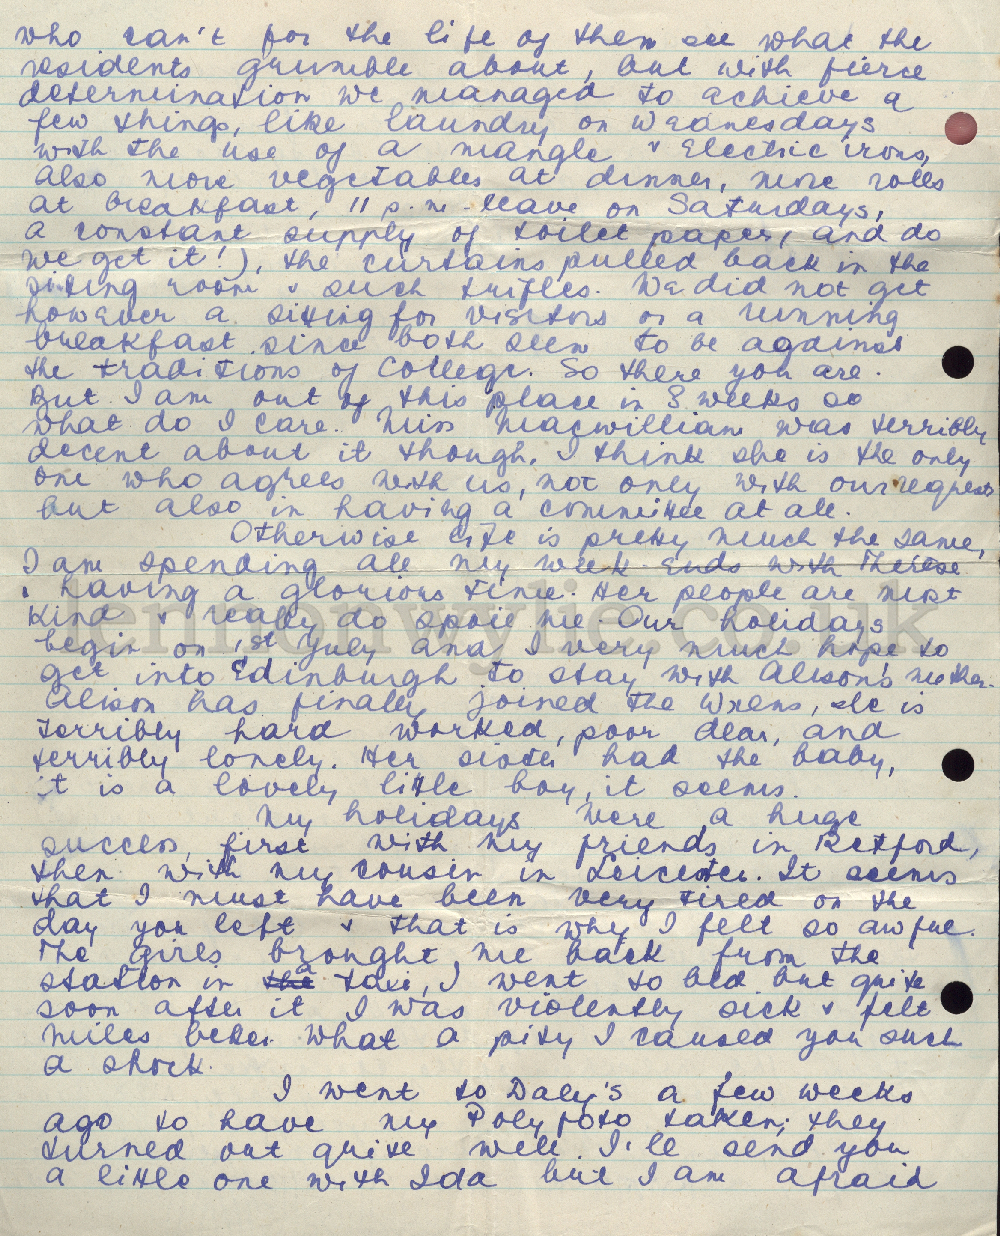 who can't for the life of them see what the
residents grumble about, but with fierce
determination we managed to achieve a
few things, like laundry on Wednesdays
with the use of a mangle & electric irons,
also more vegetables at dinner, more rolls
at breakfast, 11 p.m. leave on Saturdays,
a constant supply of toilet paper, (and do
we get it!), the curtains pulled back in the
sitting room & such trifles. We did not get
however a sitting for visitors or a running
breakfast since both seem to be against
the traditions of College. So there you are.
But I am out of this place in 8 weeks so
what do I care. Miss Macwilliam was terribly
decent about it though, I think she is the only
one who agrees with us, not only with our requests
but also in having a committee at all.
Otherwise life is pretty much the same,
I am spending all my week ends with Therese
& having a glorious time. Her people are most
kind & really do spoil me. Our holidays
begin on 1st July and I very much hope to
get into Edinburgh to stay with Alison's mother.
Alison has finally joined the Wrens, she is
terribly hard worked, poor dear, and
terribly lonely. Her sister had the baby,
it is a lovely little boy, it seems.
My holidays were a huge
success, first with my friends in Retford,
then with my cousin in Leicester. It seems
that I must have been very tired on the
day you left & that is why I felt so awful.
The girls brought me back from the
station in the a taxi, I went to bed but quite
soon after it I was violently sick & felt
miles better. What a pity I caused you such
a shock.
I went to Daly's a few weeks
ago to have my Polyfoto taken; they
turned out quite well. I'll send you
a little one with Ida but I am afraid
lennonwylie.co.uk